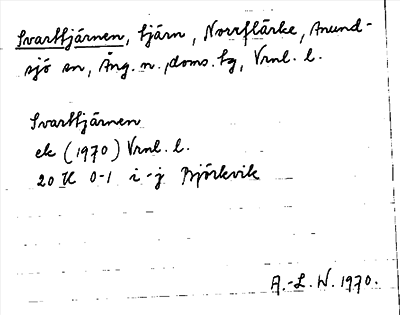 Svarttjärnen, tjärn, Norrflärke, Anund-
sjö sn, Ång. n. doms. tg, Vrnl. l.
Svarttjärnen
ek (1970) Vrnl. l.
20 H 0-1 i-j Björkvik
A.-L. W. 1970.